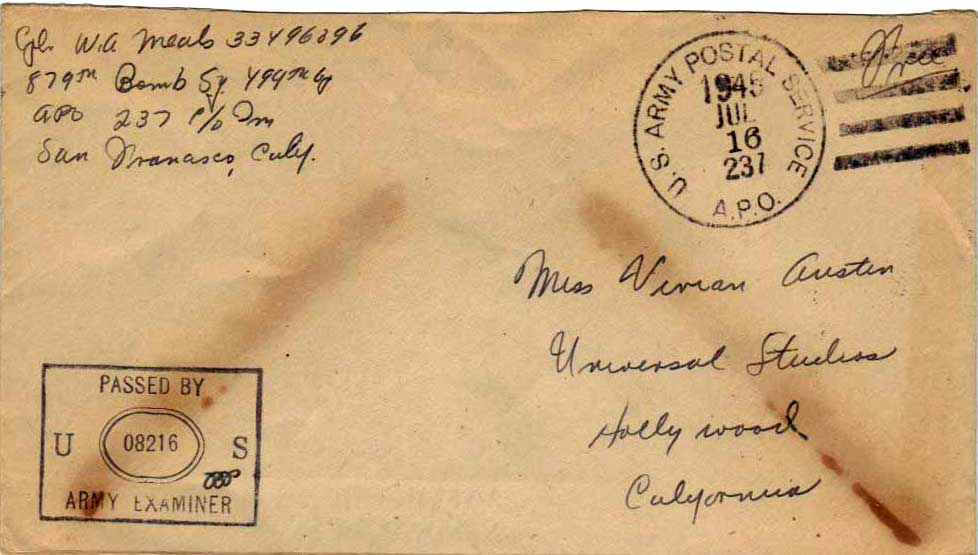 Cpl. W.A Meals 33496396
879TH Bomb Sq. 499TH Gp
APO 237 c/o Pm
San Francisco, Calif.
U.S. ARMY POSTAL SERVICE
1945
JUL
16
237
A.P.O.
Free
Miss Vivian Austin
Universal Studios
Hollywood
California
PASSED BY
U 08216 S
ARMY EXAMINER